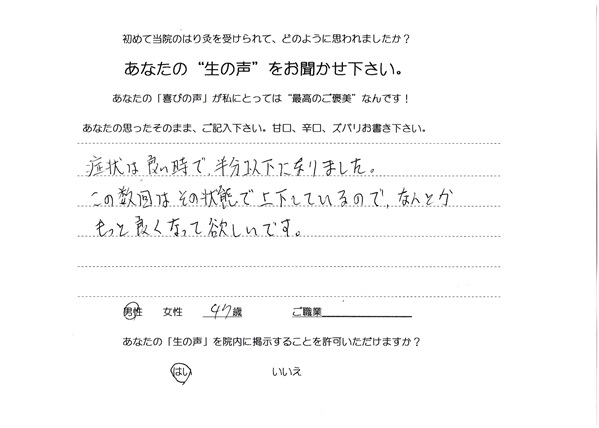 初めて当院のはり灸を受けられて、どのように思われましたか？
あなたの“生の声”をお聞かせ下さい。
あなたの「喜びの声」が私にとっては“最高のご褒美”なんです！
あなたの思ったそのまま、ご記入下さい。甘口、辛口、ズバリお書き下さい。
症状は良い時で、半分以下になりました。
この数回はその状態で上下しているので、なんとか
もっと良くなって欲しいです。
男性 女性 47歳 ご職業
あなたの「生の声」を院内に掲示することを許可いただけますか？
はい いいえ